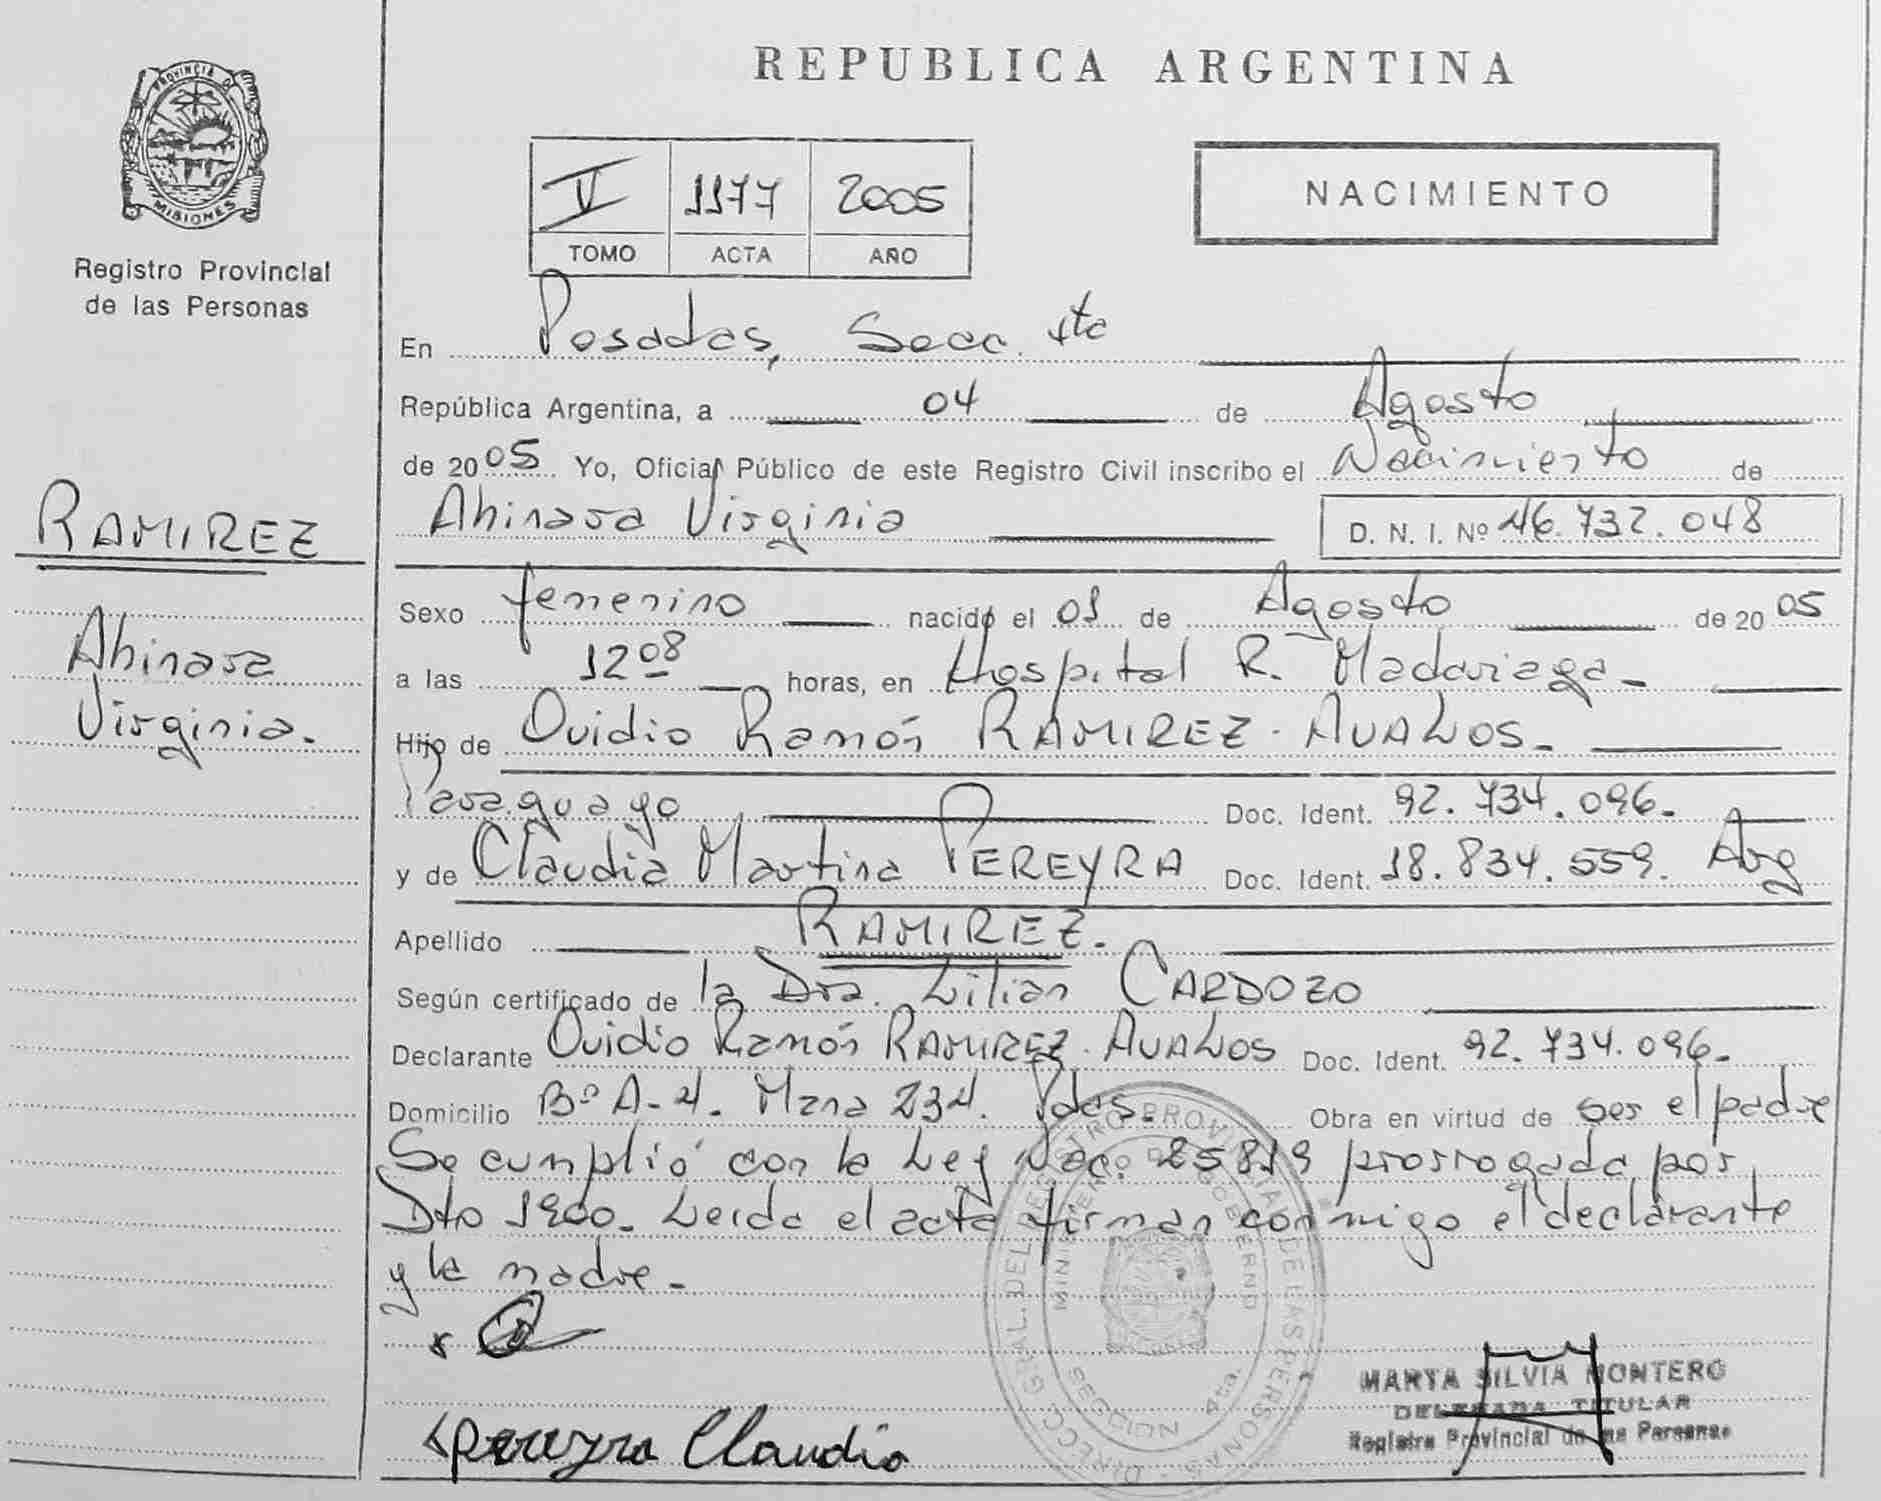 REPUBLICA ARGENTINA
PROVINCIA D
MISIONES
Registro Provincial
de las Personas
V 1177 2005
TOMO ACTA AÑO
NACIMIENTO
En Posadas, Secc. 4ta
República Argentina, a 04 de Agosto
de 2005 Yo, Oficial Público de este Registro Civil inscribo el Nacimiento de
Ahinara Virginia D. N. I. Nº 46.732.048
RAMIREZ
Ahinara
Virginia.
Sexo femenino nacido el 01 de Agosto de 2005
a las 12 08 horas, en Hospital R. Madariaga -
Hijo de Ovidio Ramón RAMIREZ - AVALOS -
Paraguayo Doc. Ident. 92.734.096-
y de Claudia Martina PEREYRA Doc. Ident. 18.834.559. Arg
Apellido RAMIREZ.
Según certificado de la Dra. Lilian CARDOZO
Declarante Ovidio Ramón RAMIREZ - AVALOS Doc. Ident. 92.734.096-
Domicilio Bº A-4. Mzna 234. Pdas. Obra en virtud de ser el padre
Se cumplió con la Ley Nac. 25819 prorrogada por
Dto 1900. Leida el acta firman conmigo el declarante
y la madre -
Pereyra Claudia
DIRECC. GRAL. DEL REGISTRO PROVINCIAL DE LAS PERSONAS
MINISTERIO DE GOBIERNO
SECCION 4ta.
MARTA SILVIA MONTERO
DELEGADA TITULAR
Registro Provincial de las Personas